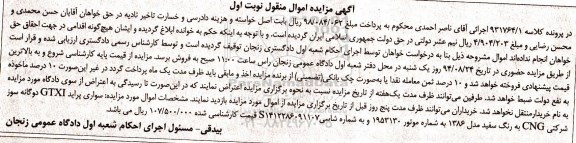 آگهی مزایده اموال منقول نوبت اول
در پرونده کلاسه ۹۳۱۲۶۴/۱ اجرائی آقای ناصر احمدی محکوم به پرداخت مبلغ ۹۸/۰۸۴/۰۶۲ ریال بابت اصل خواسته و هزینه دادرسی و خسارت تاخیر تادیه در حق خواهان آقایان حسن محمدی و
محسن رضایی و مبلغ ۴/۹۰۴/۲۰۳ ریال نیم عشر دولتی در حق دولت جمهوری اسلامی ایران گردیده است، و با توجه به اینکه حکم به خوانده ابلاغ گردیده و ایشان هیچ‌گونه اقدامی در جهت احقاق حق
خواهان انجام نداده‌اند اموال مشروحه ذیل بنا به درخواست خواهان توسط اجرای احکام شعبه اول دادگستری زنجان توقیف گردیده است و توسط کارشناس رسمی دادگستری ارزیابی شده و قرار است
از طریق مزایده حضوری در تاریخ ۹۴/۰۸/۲۴ روز یک شنبه در محل دفتر شعبه اول دادگاه عمومی زنجان راس ساعت ۱۱:۰۰ صبح به فروش برسد. مزایده از قیمت پایه کارشناسی شروع و به بالاترین
قیمت پیشنهادی فروخته خواهد شد و ۱۰ درصد ثمن معامله نقدا یا به‌صورت چک بانکی(تضمینی) از برنده مزایده اخذ و مابقی باید ظرف مدت یک ماه پرداخت گردد در غیر این‌صورت ۱۰ درصد ماخوذه
به نفع دولت ضبط خواهد شد. طرفین می‌توانند ظرف مدت یک‌هفته از تاریخ مزایده نسبت به نحوه برگزاری مزایده اعتراض نمایند که در این‌صورت تا رسیدگی به اعتراض از سوی دادگاه مورد مزایده
به نام خریدار منتقل نخواهد شد. خریداران می‌توانند ظرف مدت پنج روز قبل از تاریخ برگزاری مزایده از اموال مورد مزایده بازدید نمایند. مشخصات اموال مورد مزایده: سواری پراید GTXI دوگانه سوز
شرکتی CNG به رنگ سفید مدل ۱۳۸۶ به شماره موتور ۱۹۵۳۱۳۰ و به شماره شاسی S۱۴۱۲۲۸۶۰۹۱۱۰۷ قیمت کارشناسی شده ۱۰۷/۵۰۰/۰۰۰ ریال می باشد.
بیدقی- مسئول اجرای احکام شعبه اول دادگاه عمومی زنجان